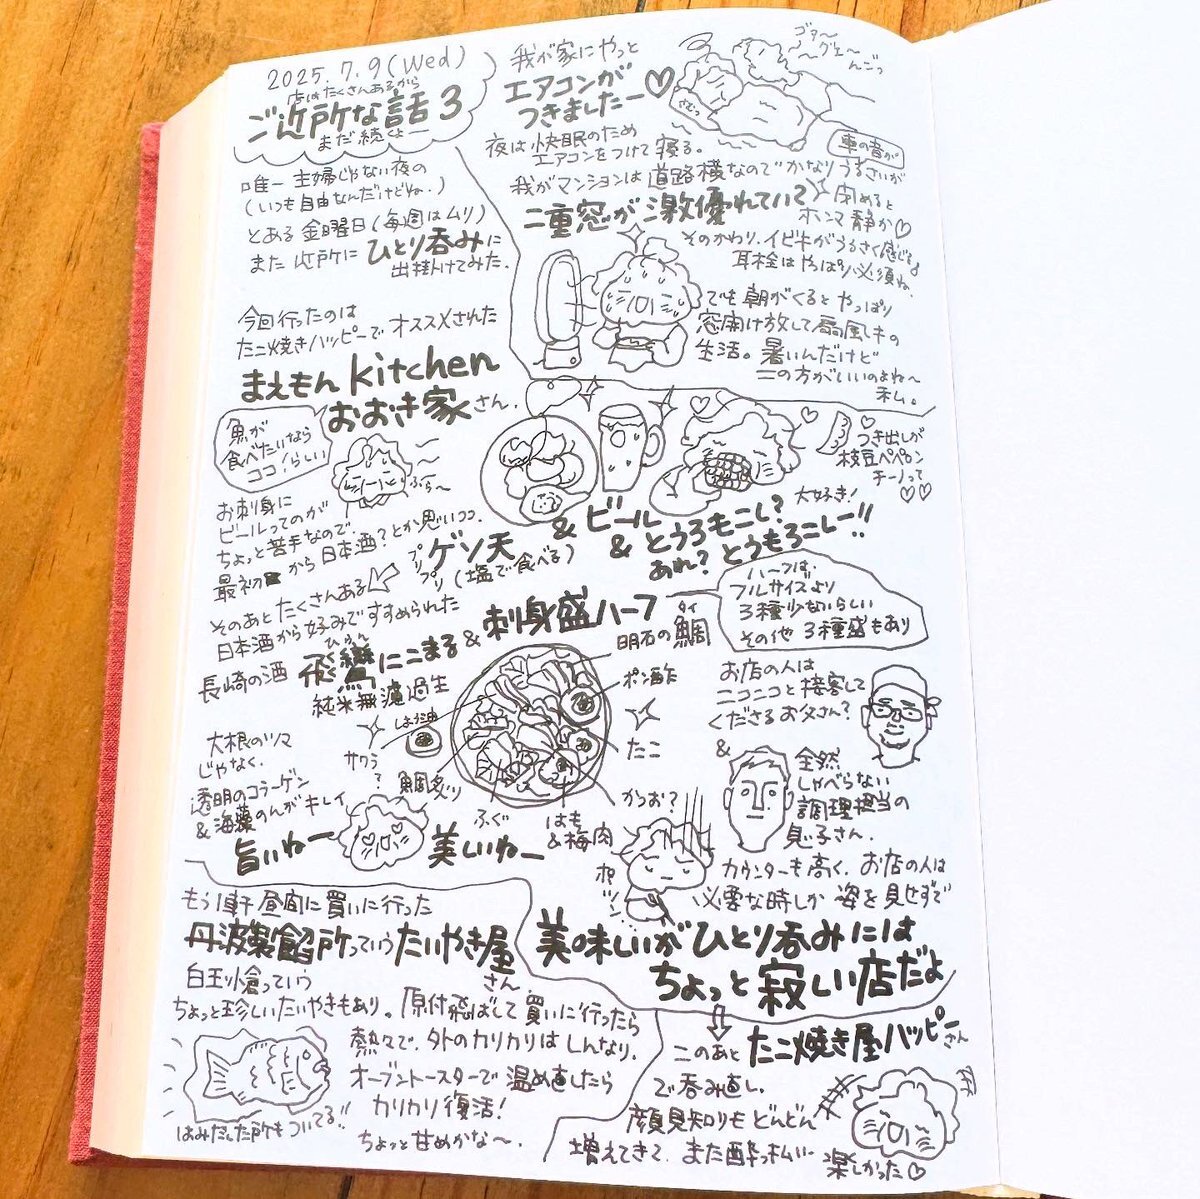 2025.7.9(Wed)
店はたくさんあるから
ご近所な話3
まだ続くよー
唯一主婦じゃない夜の
(いつも自由なんだけどね。)
とある金曜日(毎週はムリ)
また近所にひとり呑みに
出掛けてみた。
今回行ったのは
たこ焼きハッピーでオススメされた
まえもんkitchen
おおき家さん。
魚が
食べたいなら
ココ!らしい
ふら〜
お刺身に
ビールってのが
ちょっと苦手なので
最初から日本酒?とか思いつつ、
プリプリ
ゲソ天
(塩で食べる)
& ビール
& とうろもこし?
あれ?とうもろこしー!!
大好き!
つき出しが
枝豆ペペロン
チーノって
そのあとたくさんある
日本酒から好みですすめられた
長崎の酒
飛鸞にこまる&刺身盛ハーフ
純米無濾過生
ハーフは、
フルサイズより
3種少ないらしい
その他3種盛もあり
タイ
明石の鯛
ポン酢
たこ
かつお?
はも
&梅肉
ふぐ
鯛炙り
サワラ
?
しょう油
大根のツマ
じゃなく、
透明のコラーゲン
&海藻のんがキレイ
旨いねー
美しいねー
お店の人は
ニコニコと接客して
くださるお父さん?
&
全然
しゃべらない
調理担当の
息子さん。
カウンターも高く、お店の人は
必要な時しか姿を見せずで
ポツン
美味しいがひとり呑みには
ちょっと寂しい店だよ
このあと たこ焼き屋ハッピーさん
で呑み直し。
顔見知りもどんどん
増えてきて、また酔っ払い…
楽しかった♡
もう1軒昼間に買いに行った
丹波製餡所っていうたいやき屋
さん
白玉小倉っていう
ちょっと珍しいたいやきもあり。原付飛ばして買いに行ったら
熱々で、外のカリカリはしんなり。
オーブントースターで温め直したら
カリカリ復活!
ちょっと甘めかな〜。
はみだした所もついてる!!
我が家にやっと
エアコンが
つきましたー♡
ゴァ〜
〜グェ〜
んごっ
さむっ
夜は快眠のため
エアコンをつけて寝る。
我がマンションは道路横なのでかなりうるさいが
車の音が
二重窓が激優れていて
閉めると
ホンマ静か♡
そのかわり、イビキがうるさく感じる♪
耳栓はやっぱり必須ね。
でも朝がくるとやっぱり
窓開け放して扇風キの
生活。暑いんだけど
この方がいいのよね〜
私。